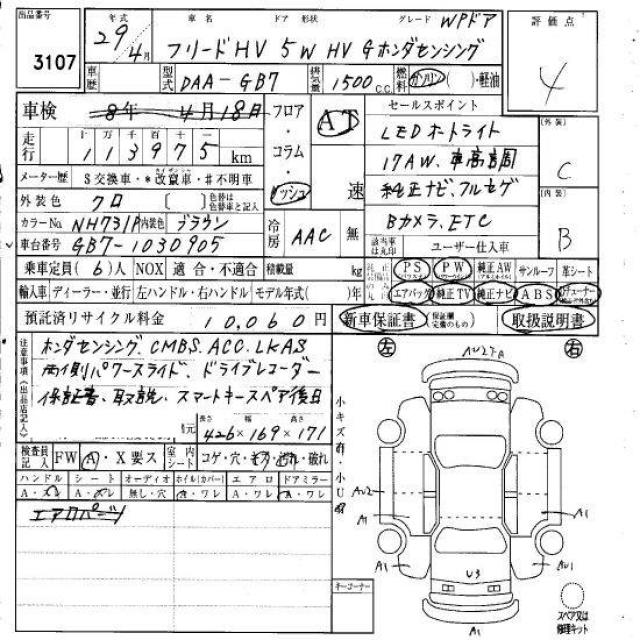 出品番号 3107
年式 29年 4月
車名 ドア 形状 グレード WPドア
フリードHV 5W HV Gホンダセンシング
評価点 4
車歴
型式 DAA-GB7
排気量 1500 C.C.
燃料 ガソリン ( )・軽油
車検 8年 4月18日
フロア・コラム・ AT
走行 十万 万 千 百 十 一
1 1 3 9 7 5 km
メーター歴 $交換車・*改竄車・#不明車
外装色 クロ [ ] 色替は色替車と記入
速
カラーNo. NH731P 内装色 ブラウン
冷房 AAC 無
車台番号 GB7-1030905
セールスポイント
LEDオートライト
17AW、車高調
純正ナビ、フルセグ
Bカメラ、ETC
該当車は丸印 ユーザー仕入車
〔外装〕 C
〔内装〕 B
乗車定員 (6) 人 NOX 適合・不適合 積載量 kg
PS PW 純正AW サンルーフ 革シート
輸入車 ディーラー・並行 左ハンドル・右ハンドル モデル年式( )年
エアバック 純正TV 純正ナビ ABS
預託済リサイクル料金 10,060円
新車保証書 (保証欄完備のもの) 取扱説明書
注意事項(出品店記入)
ホンダセンシング、CMBS、ACC、LKAS
両側パワースライド、ドライブレコーダー
保証書、取説、スマートキースペア後日
長さ 幅 高さ
426×169×171
検査員記入 FW A・X要ス 室内シート コゲ・穴・キズ・汚れ・破れ
ハンドル シート オーディオ ホイル(カバー) エアロ ドアミラー
A・ス A・ズレ 無し・穴 A・ワレ A・ワレ A・ワレ
エアロパーツ
左 右
小キズ
小U
AU2
A1
A1
A1
AU1
U3
A1
キーコーナー
スペア又は修理キット